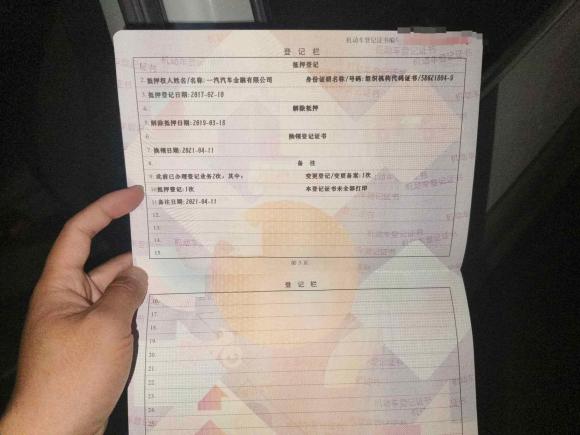 机动车登记证书编号
登记栏
1. 抵押登记
2. 抵押权人姓名/名称:一汽汽车金融有限公司 身份证明名称/号码:组织机构代码证书/58621804-9
3. 抵押登记日期:2017-02-10
4. 解除抵押
5. 解除抵押日期:2019-03-18
6. 换领登记证书
7. 换领日期:2021-04-11
8. 备注
9. 此前已办理登记业务2次，其中: 变更登记/变更备案:1次
10. 抵押登记:1次 本登记证书未全部打印
11. 备注日期:2021-04-11
12.
13.
14.
15.
第 3 页
登记栏
16.
17.
18.
19.
20.
21.
22.
23.
24.
25.